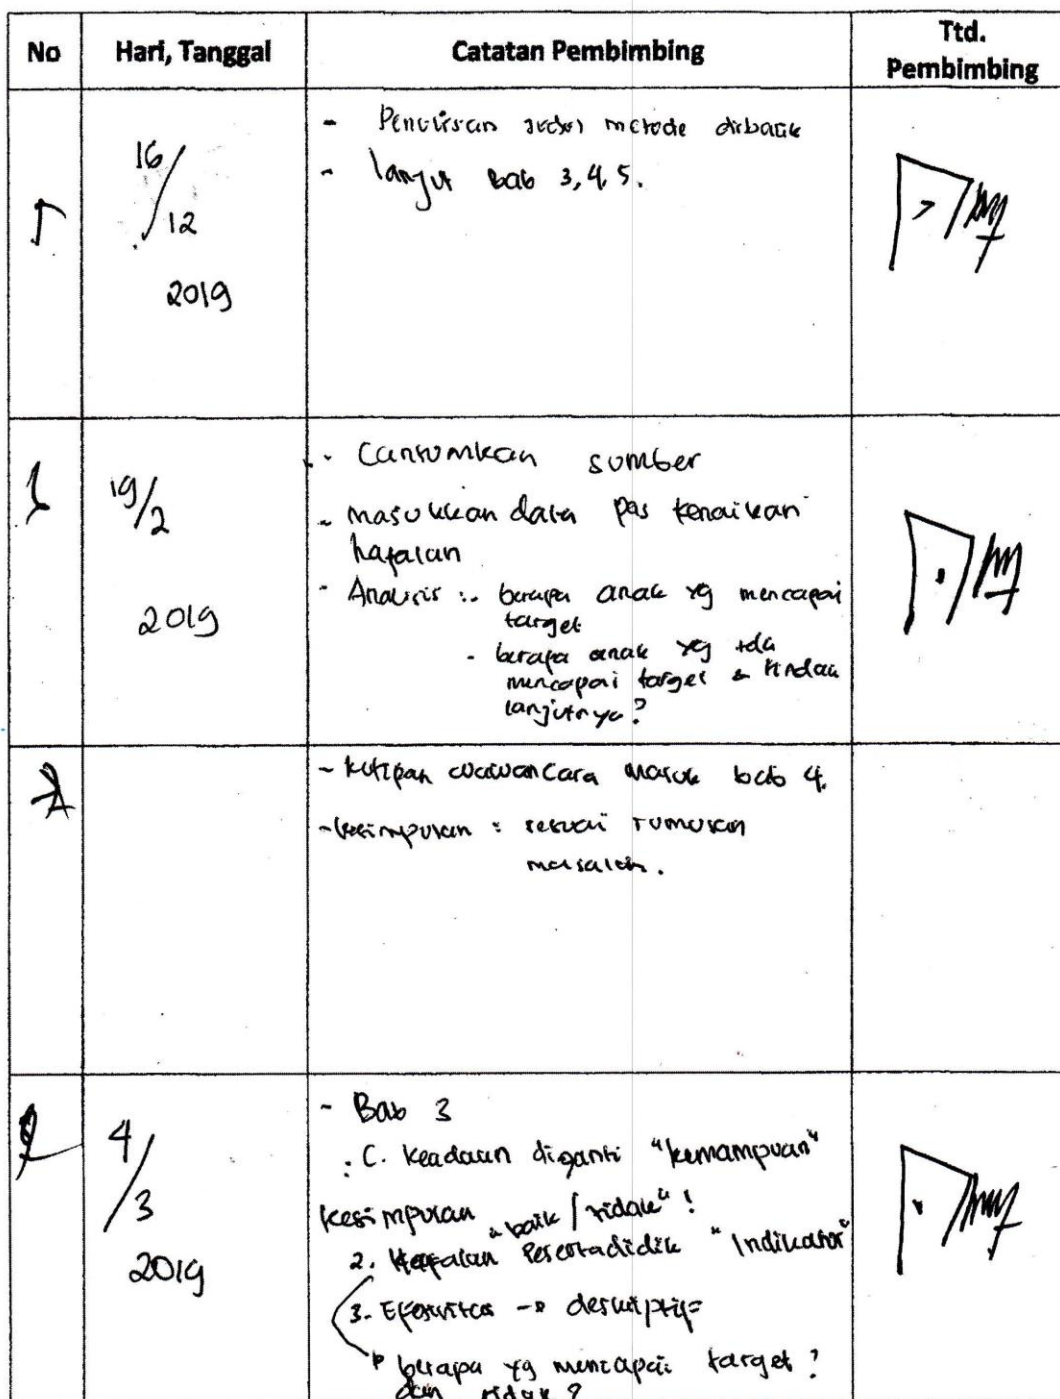 No
Hari, Tanggal
Catatan Pembimbing
Ttd.
Pembimbing
16/12
2019
- Penulisan metode
- lanjut Bab 3, 4, 5.
19/2
2019
- Cantumkan sumber
- masukkan data pas kenaikan
hafalan
- Analisis : - berapa anak yg mencapai
target
- berapa anak yg tdk
mencapai target & tindak
lanjutnya?
- kutipan wawancara masuk bab 4.
- kesimpulan : sesuai rumusan
masalah.
4/3
2019
- Bab 3
: C. Keadaan diganti "kemampuan"
kesimpulan "baik / tidak" !
2. Hafalan Peserta didik "Indikator"
3. Efektivitas → deskriptif
berapa yg mencapai target ?
dan tidak ?